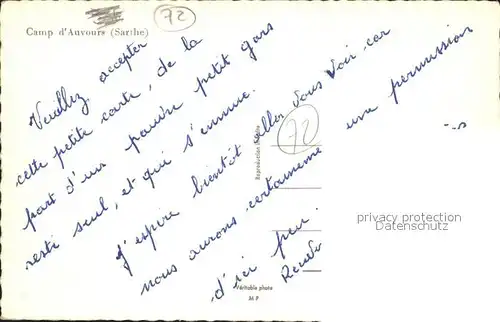 72
Camp d'Auvours (Sarthe)
Veuillez accepter
cette petite carte, de la
part d'un pauvre petit gars
resté seul, et qui s'ennuie.
J'espère bientôt aller vous voir car
nous aurons certainement une permission
d'ici peu.
72
Reproduction interdite
privacy protection
Datenschutz
Véritable photo